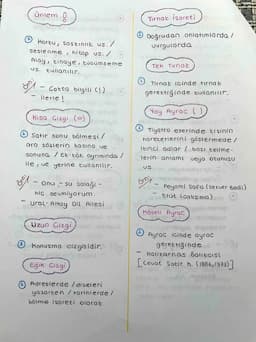 Ünlem !
Korku, şaşkınlık vs. /
seslenme, hitap vs. /
Alay, kinaye, küçümseme
vs. kullanılır.
- Çokta bilgili (!)
- İleri!
Kısa Çizgi (-)
Satır sonu bölmesi /
ara sözlerin başına ve
sonuna / Ek kök ayrımında /
ile, ve yerine kullanılır.
- Onu - şu salağı -
hiç sevmiyorum.
- Ural-Altay Dil Ailesi
Uzun Çizgi
Konuşma çizgisidir.
Eğik Çizgi
Adreslerde / dizeleri
yazarken / tarihlerde /
bölme işareti olarak
Tırnak İşareti
Doğrudan anlatımlarda /
vurgularda
Tek Tırnak
Tırnak içinde tırnak
gerektiğinde kullanılır.
Yay Ayraç ( )
Tiyatro eserinde kişinin
hareketlerini göstermede /
ikinci adlar / bazı kelime-
lerin anlamı veya okunuşu
vs.
- Peyami Safa (Server Bedi)
Köşeli Ayraç
Ayraç içinde ayraç
gerektiğinde
- Halikarnas Balıkçısı
[Cevat Şakir K. (1886, 1973)]